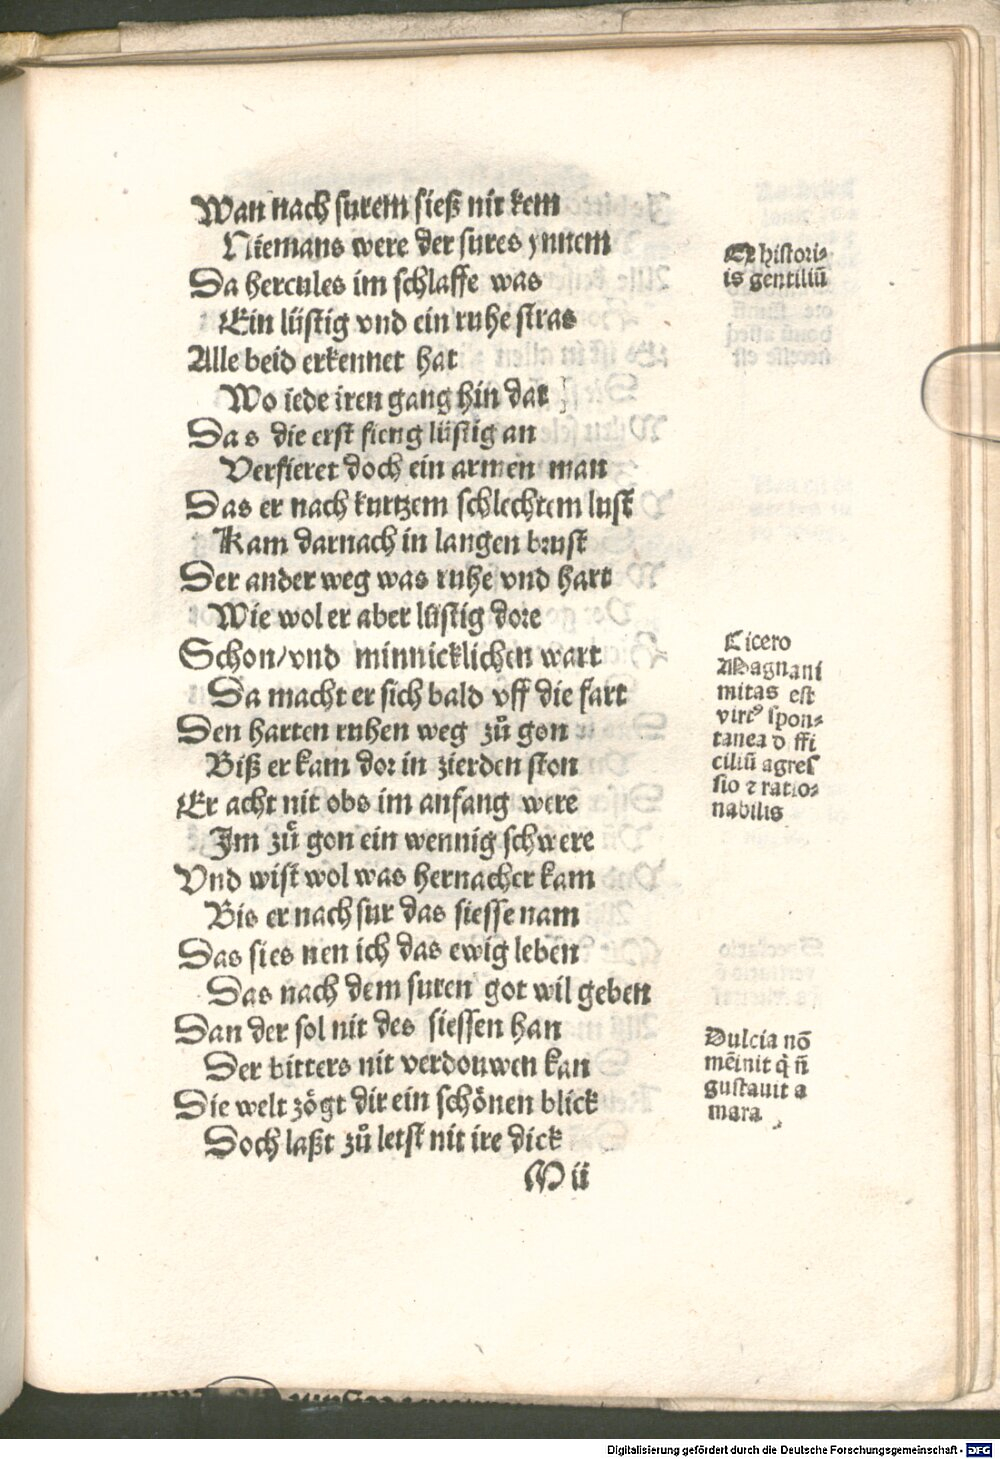 Wan nach surem sieß nit kem
Niemans were der sures ynnem
Da hercules im schlaffe was
Ein lüstig vnd ein ruhe stras
Alle beid erkennet hat
Wo iede iren gang hin dat
Da s die erst fieng lüstig an
Verfieret doch ein armen man
Das er nach kurtzem schlechtem lust
Kam darnach in langen brust
Der ander weg was ruhe vnd hart
Wie wol er aber lüstig dore
Schon/vnd minnicklichen wart
Da macht er sich bald vff die fart
Den harten ruhen weg zů gon
Biß er kam dor in zierden ston
Er acht nit obs im anfang were
Im zů gon ein wennig schwere
Vnd wist wol was hernacher kam
Bis er nach sur das siesse nam
Das sies nen ich das ewig leben
Das nach dem suren got wil geben
Dan der sol nit des siessen han
Der bitters nit verdouwen kan
Die welt zögt dir ein schönen blick
Doch laßt zů letst nit ire dick
M ii
Ex histori-
is gentiliū
Cicero
Magnani
mitas est
virtꝰ spon-
tanea d ffi
ciliū agres
sio ⁊ ratio-
nabilis
Dulcia nō
mēinit q̇ n̄
gustauit a
mara
Digitalisierung gefördert durch die Deutsche Forschungsgemeinschaft - DFG